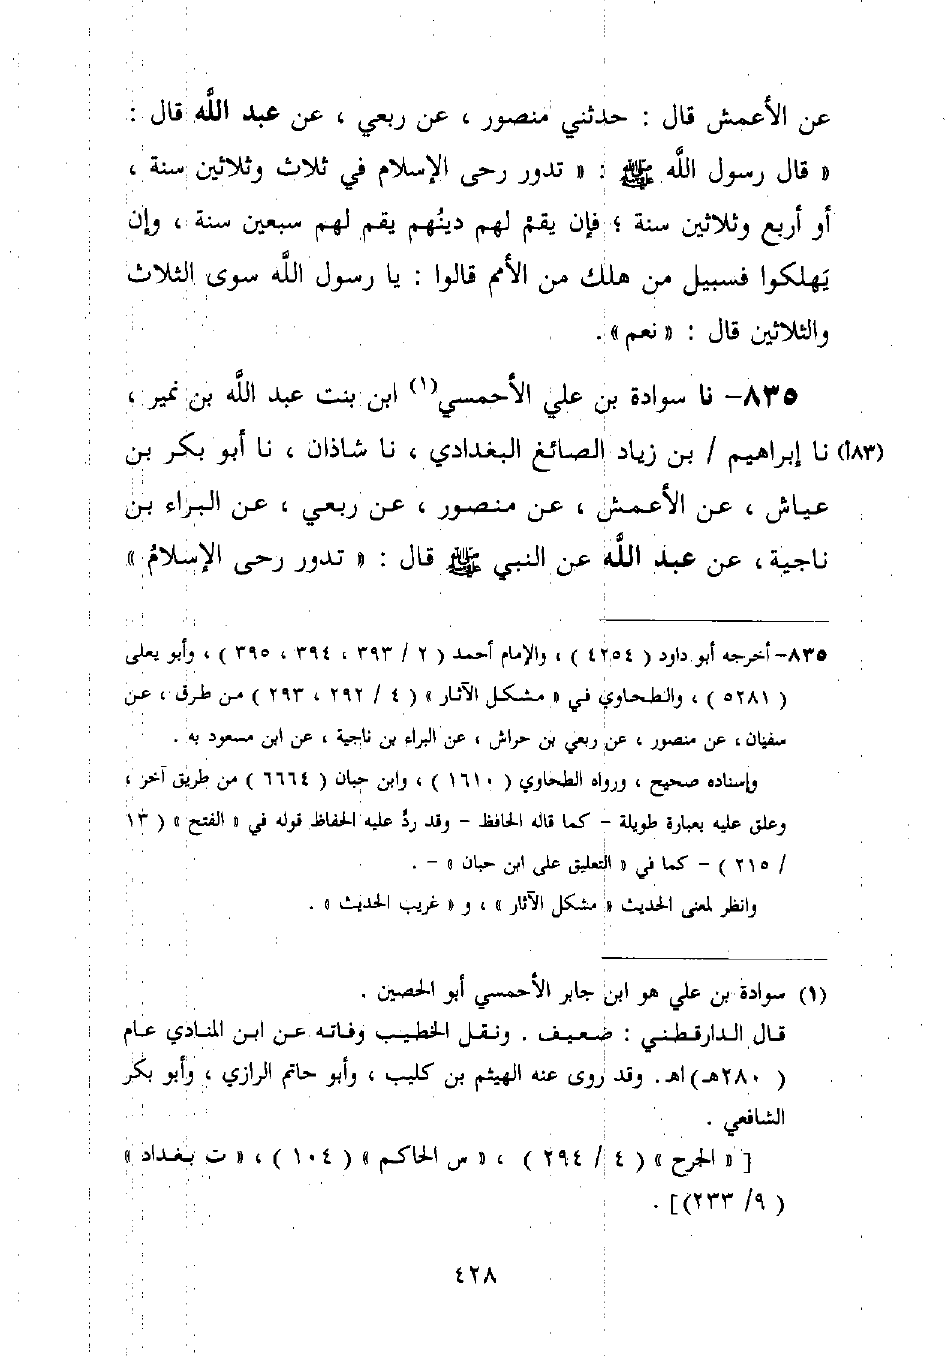 عن الأعمش قال : حدثني منصور ، عن ربعي ، عن عبد الله قال :
« قال رسول الله ﷺ : « تدور رحى الإسلام في ثلاث وثلاثين سنة ،
أو أربع وثلاثين سنة ؛ فإن يقمْ لهم دينُهم يقم لهم سبعين سنة ، وإن
يَهلكوا فسبيل من هلك من الأمم قالوا : يا رسول الله سوى الثلاث
والثلاثين قال : « نعم » .
٨٣٥- نا سوادة بن علي الأحمسي(١) ابن بنت عبد الله بن نمير ،
(٨٣أ) نا إبراهيم / بن زياد الصائغ البغدادي ، نا شاذان ، نا أبو بكر بن
عياش ، عن الأعمش ، عن منصور ، عن ربعي ، عن البراء بن
ناجية ، عن عبد الله عن النبي ﷺ قال : « تدور رحى الإسلامُ »
٨٣٥- أخرجه أبو داود ( ٤٢٥٤ ) ، والإمام أحمد ( ٢ / ٣٩٣ ، ٣٩٤ ، ٣٩٥ ) ، وأبو يعلى
( ٥٢٨١ ) ، والطحاوي في « مشكل الآثار » ( ٤ / ٢٩٢ ، ٢٩٣ ) من طرق ، عن
سفيان ، عن منصور ، عن ربعي بن حراش ، عن البراء بن ناجية ، عن ابن مسعود به .
وإسناده صحيح ، ورواه الطحاوي ( ١٦١٠ ) ، وابن حبان ( ٦٦٦٤ ) من طريق آخر ،
وعلق عليه بعبارة طويلة - كما قاله الحافظ - وقد ردَّ عليه الحفاظ قوله في « الفتح » ( ١٣
/ ٢١٥ ) - كما في « التعليق على ابن حبان » - .
وانظر لمعنى الحديث « مشكل الآثار » ، و « غريب الحديث » .
(١) سوادة بن علي هو ابن جابر الأحمسي أبو الحصين .
قال الدارقطني : ضعيف . ونقل الخطيب وفاته عن ابن المنادي عام
( ٢٨٠هـ ) اهـ . وقد روى عنه الهيثم بن كليب ، وأبو حاتم الرازي ، وأبو بكر
الشافعي .
[ « الجرح » ( ٤ / ٢٩٤ ) ، « س الحاكم » ( ١٠٤ ) ، « ت بغداد »
( ٩/ ٢٣٣ )] .
٤٢٨